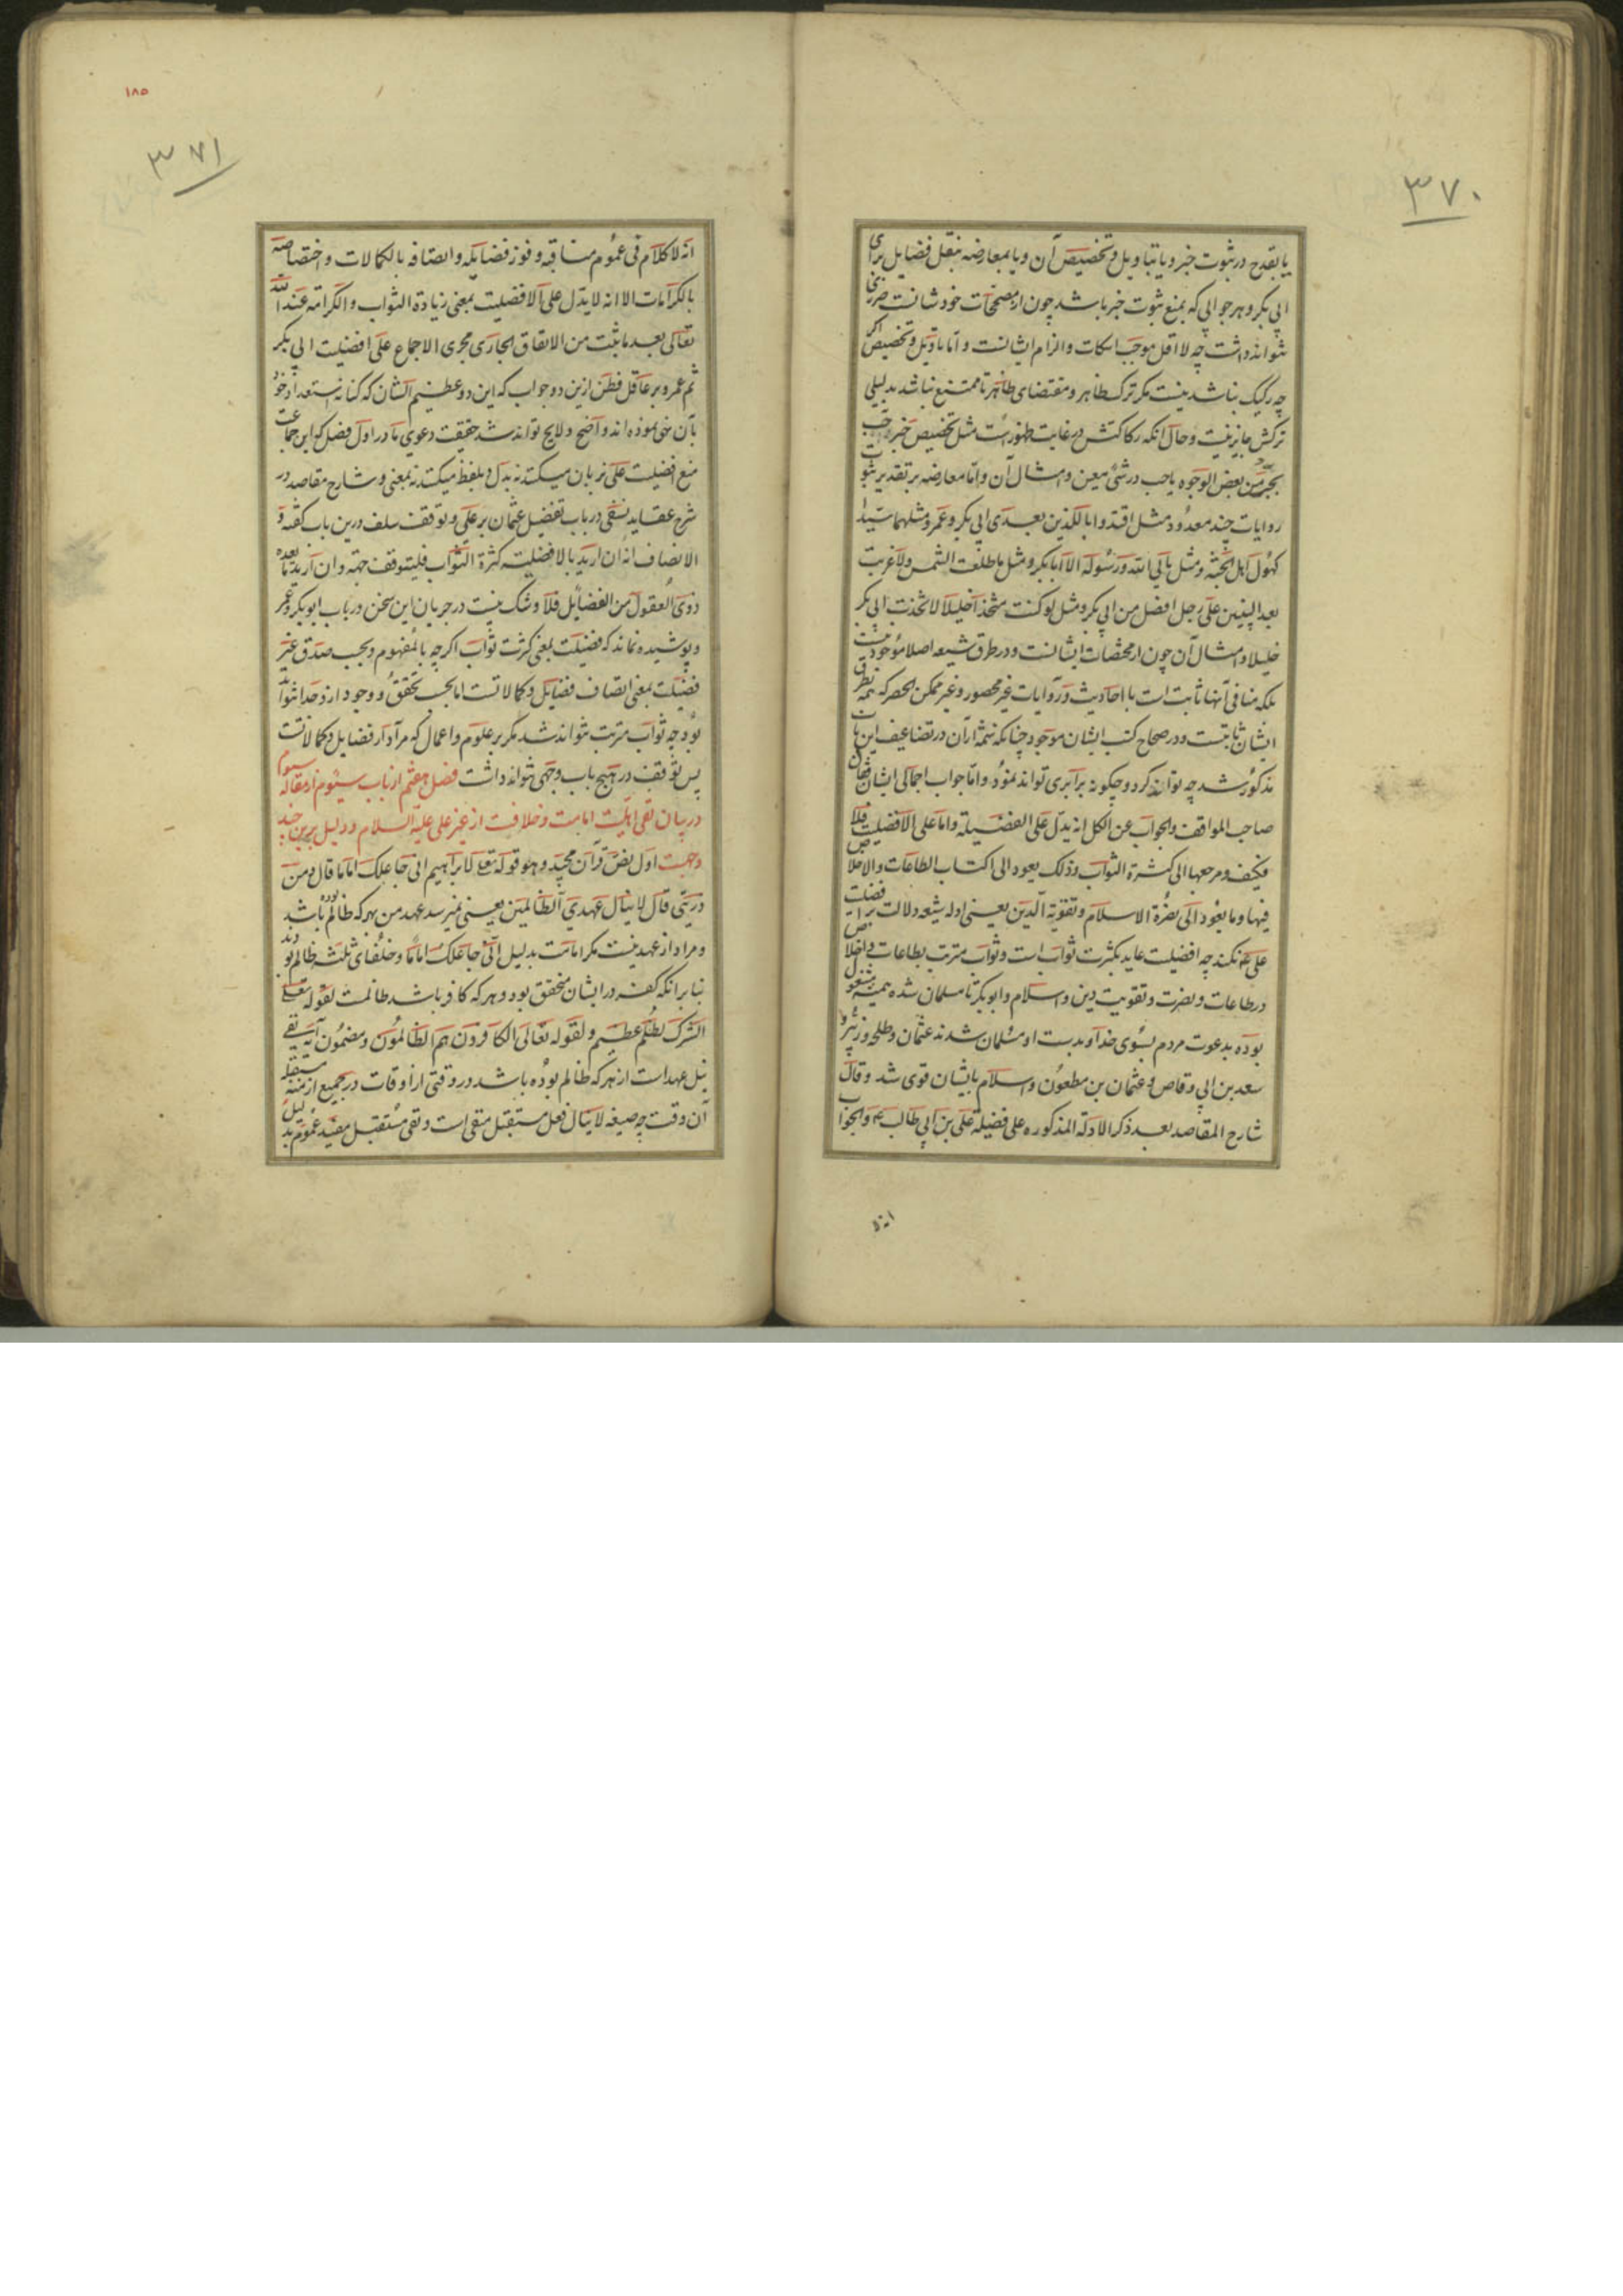 ۳۷۰
یا بقدح در ثبوت خبر و یا بتاویل و تخصیص آن و یا بمعارضه بنقل فضایل برای
ابی بکر و هر جوابی که بمنع ثبوت خبر باشد چون از مصححات خودشانست ضرری
نتواند داشت چه لا اقل موجب اسکات و الزام ایشانست و اما تاویل و تخصیص اگر
چه رکیک نباشد نیست مگر ترک ظاهر و مقتضای ظاهر تا ممتنع نباشد بدلیلی
ترکش جایز نیست و حال آنکه رکاکتش در غایت ظهور است مثل تخصیص خبر
بخیر من بعض الوجوه یا حب در شئ معین و امثال آن و اما معارضه بر تقدیر ثبوت
روایات چند معدود مثل اقتدوا بالذین بعدی ابی بکر و عمر و مثل هما سیدا
کهول اهل الجنة و مثل یابی الله و رسوله الا ابا بکر و مثل ما طلعت الشمس و لا غربت
بعد النبیین علی رجل افضل من ابی بکر و مثل لو کنت متخذا خلیلا لاتخذت ابی بکر
خلیلا و امثال آن چون از مختصات ایشانست و در طرق شیعه اصلا موجود نیست
بلکه منافی آنها ثابت است با احادیث و روایات غیر محصور و غیر ممکن الحصر که همه بطرق
ایشان ثابتست و در صحاح کتب ایشان موجود چنانکه شمه از آن در تضاعیف این باب
مذکور شد چه تواند کرد و چگونه برابری تواند نمود و اما جواب اجمالی ایشان فقال
صاحب المواقف و الجواب عن الکل انه یدل علی الفضیلة و اما علی الافضلیت فلا
فکیف و مرجعها الی کثرة الثواب و ذلک یعود الی اکتساب الطاعات و الاخلاص
فیها و ما یعود الی نصرة الاسلام و تقویة الدین یعنی ادله شیعه دلالت بر افضلیت
علی ع نکند چه افضلیت عاید بکثرت ثواب است و ثواب مترتب بطاعات و اخلاص
در طاعات و نصرت و تقویت دین و اسلام و ابوبکر تا مسلمان شده همیشه مشغول
بوده بدعوت مردم بسوی خدا و بدست او مسلمان شدند عثمان و طلحه و زبیر و
سعد بن ابی وقاص و عثمان بن مظعون و اسلام بایشان قوی شد و قال
شارح المقاصد بعد ذکر الادلة المذکوره علی فضیلة علی بن ابی طالب ع و الجواب
۱۸۵
۳۷۱
انه لا کلام فی عموم مناقبه و فوز فضایله و اتصافه بالکمالات و اختصاصه
بالکرامات الا انه لا یدل علی الافضلیت بمعنی زیادة الثواب و الکرامة عند الله
تعالی بعد ما ثبت من الاتفاق الجاری مجری الاجماع علی افضلیت ابی بکر
ثم عمر و بر عاقل فطن ازین دو جواب که این دو عظیم الشان که
بآن نموده اند واضح و لایح تواند شد حقیقت دعوی ما در اول فصل که این جماعت
منع افضلیت علی بزبان میکنند نه بدل و بلفظ میکنند نه بمعنی و شارح مقاصد در
شرح عقاید نسفی در باب تفضیل عثمان بر علی و توقف سلف درین باب گفته و
الانصاف انه ان ارید بالافضلیة کثرة الثواب فلیتوقف جهة و ان ارید ما یعده
ذوی العقول من الفضایل فلا و شک نیست در جریان این سخن در باب ابوبکر و عمر
و پوشیده نماند که فضیلت بمعنی کثرت ثواب اگرچه بالمفهوم و بحسب صدق غیر
فضیلت بمعنی اتصاف فضایل و کمالاتست اما بحسب تحقق و وجود ازو جدا نتواند
بود چه ثواب مترتب نتواند شد مگر بر علوم و اعمال که مراد از فضایل و کمالاتست
پس توقف در هیچ باب وجهی نتواند داشت فصل هفتم از باب سیوم از مقاله سیوم
در بیان نفی اهلیت امامت و خلافت از غیر علی علیه السلام و دلیل برین چند
وجهست اول نص قرآن مجید و هو قوله تعالی لابراهیم انی جاعلک اماما قال و من
ذریتی قال لا ینال عهدی الظالمین یعنی نمیرسد عهد من بهر که ظالم بوده باشد
و مراد از عهد نیست مگر امامت بدلیل انی جاعلک اماما و خلفای ثلثه ظالم بودند
بنا بر آنکه کفر در ایشان متحقق بود و هر که کافر باشد ظالمست لقوله تعالی
الشرک لظلم عظیم و لقوله تعالی الکافرون هم الظالمون و مضمون آیه نفی
نیل عهد است از هر که ظالم بوده باشد در وقتی از اوقات در جمیع ازمنه مستقبله
آن وقت چه صیغه لا ینال فعل مستقبل منفی است و نفی مستقبل مفید عموم بدلیل